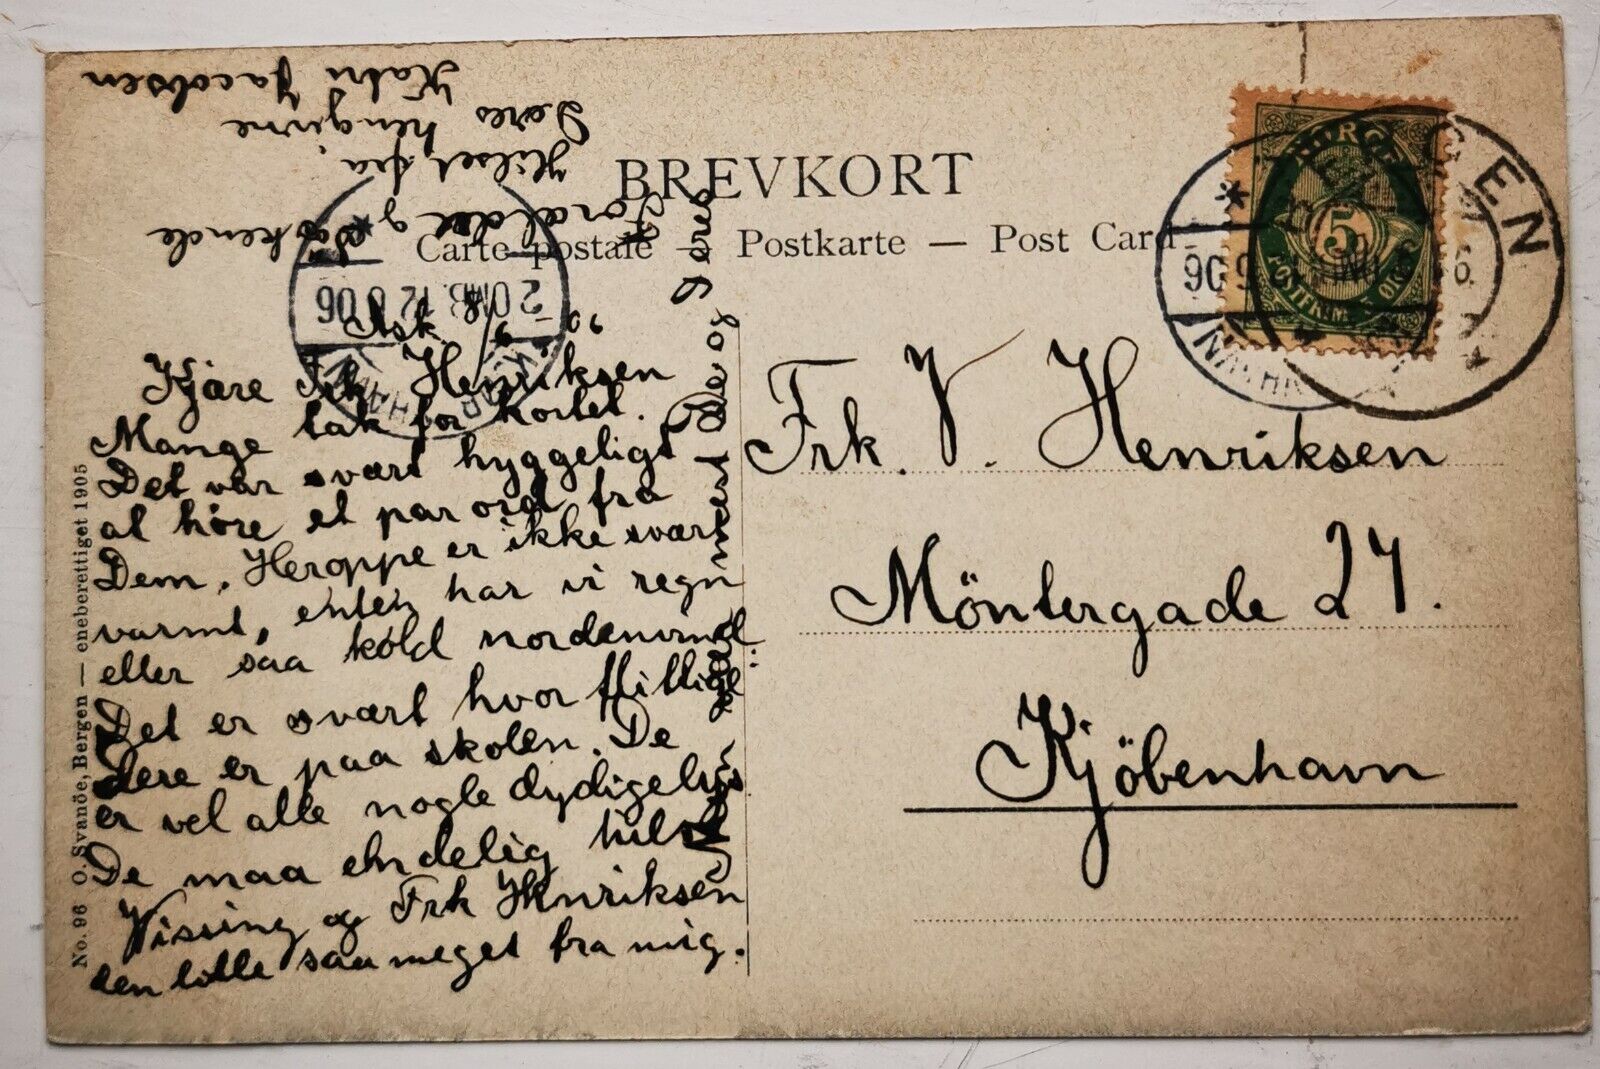 BREVKORT
Carte postale — Postkarte — Post Card
NORGE
5
POSTFRIM
BERGEN
2 OMB. 12 6 06
No. 96 O. Svanöe, Bergen — eneberettiget 1905
Ask
Kjære Frk. Henriksen
Mange tak for kortet.
Det var svært hyggeligt
at höre et par ord fra
Dem. Heroppe er ikke svært
varmt, enten har vi regn
eller saa kold nordenvind
Det er svært hvor flittige
dere er paa skolen. De
er vel alle nogle dydigelys
De maa endelig hilse
Vissing og Frk Henriksen
den lille saa meget fra mig.
De og Deres
Forældre og
Söskende
Hilset fra
Deres hengivne
Jacobsen
Frk. V. Henriksen
Möntergade 24.
Kjöbenhavn